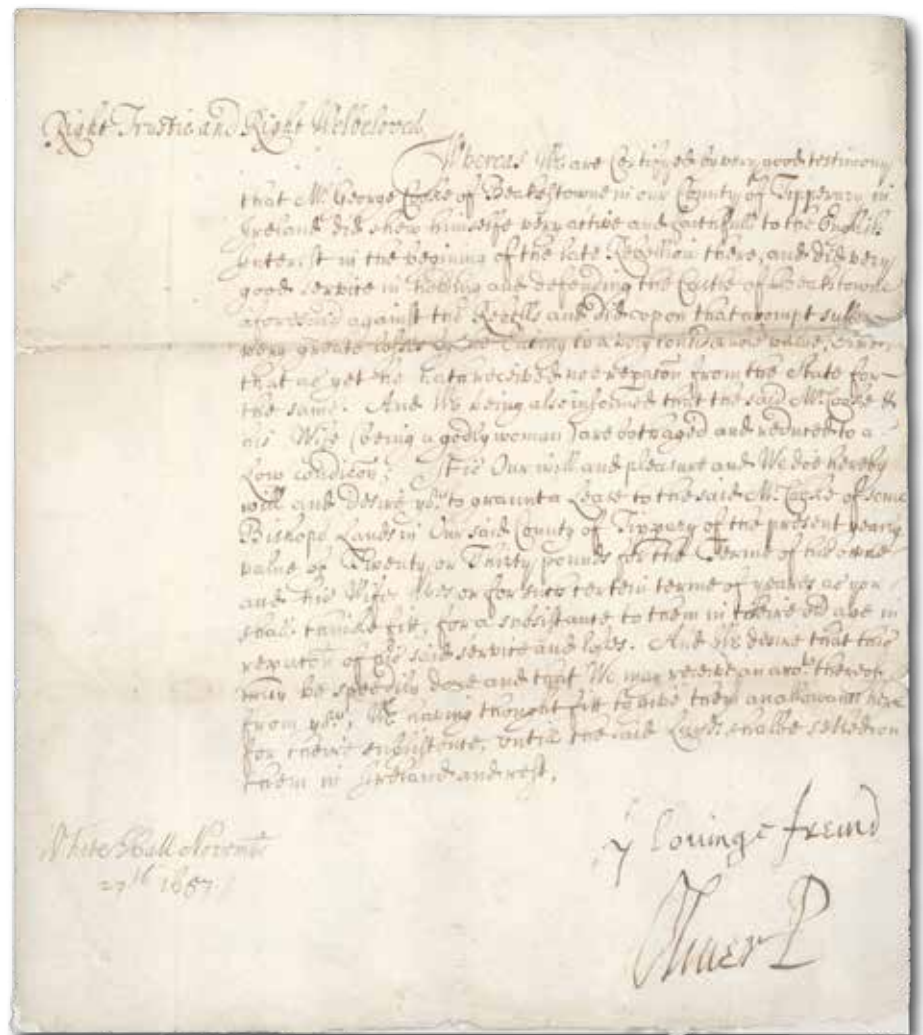 Right Trustie and Right Welbeloved
Whereas We are Certifyed by very good testimony
that Mr. George Cooke of Beakestowne in our County of Tipperary in
Ireland did shew himselfe very active and faithfull to the English
Interest in the begining of the late Rebellion there, and did very
good service in holding and defending the Castle of Beakstowne
aforesaid against the Rebells and did upon that attempt suffer
very greate losses to a very value,
that as yet he hath received noe reparacon from the State for
the same. And We being also informed that the said Mr. Cooke &
his Wife (being a godly woman) are and reduced to a
Low condicon; It is Our will and pleasure and We doe hereby
will and desire you to graunt a Lease to the said Mr. Cooke of some
Bishops Lands in Our said County of Tipperary of the present yearly
value of Twenty or Thirty pounds for the Terme of his owne
and his Wifes lives or for such certein terme of yeares as you
shall thinke fitt, for a subsistance to them in theire old age in
reparacon of his said service and losses. And We desire that this
may be speedily done and that We may receive an thereof
from you, We having thought fitt to give them an allowance here
for theire subsistence, untill the said Lands shalbe settled on
them in Ireland and rest,
yr Lovinge freind
Oliver P
White Hall Novemb
27th 1657